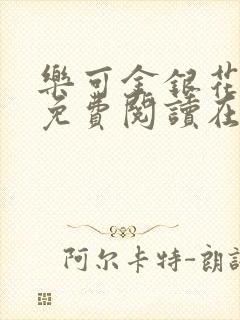 樂可金銀花
免費閱讀在
阿尔卡特-朗